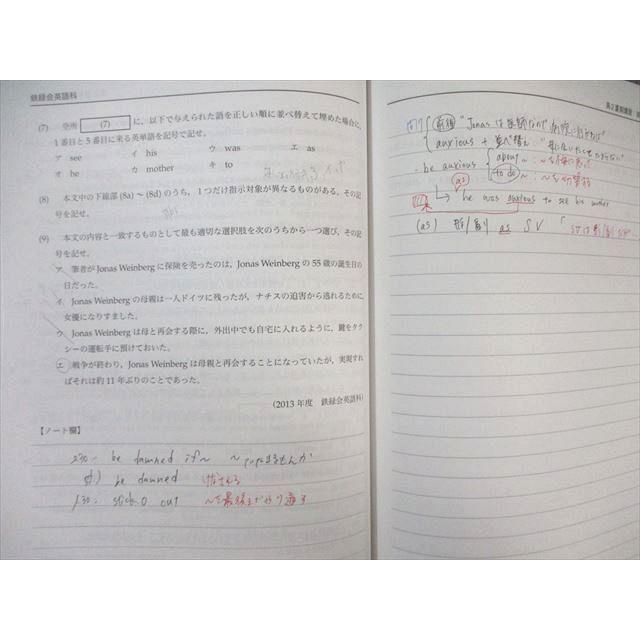 鉄緑会英語科
(7) 空所 (7) に，以下で与えられた語を正しい順に並べ替えて埋めた場合に，
1番目と5番目に来る英単語を記号で記せ。
ア see イ his ウ was エ as
オ he カ mother キ to
(8) 本文中の下線部 (8a) ～ (8d) のうち，1つだけ指示対象が異なるものがある。その記
号を記せ。
(9) 本文の内容と一致するものとして最も適切な選択肢を次のうちから一つ選び，その記
号を記せ。
ア 筆者が Jonas Weinberg に保険を売ったのは，Jonas Weinberg の 55 歳の誕生日の
日だった。
イ Jonas Weinberg の母親は一人ドイツに残ったが，ナチスの迫害から逃れるために
女優になりすました。
ウ Jonas Weinberg は母と再会する際に，外出中でも自宅に入れるように，鍵をタク
シーの運転手に預けておいた。
エ 戦争が終わり，Jonas Weinberg は母親と再会することになっていたが，実現すれ
ばそれは約 11 年ぶりのことであった。
(2013 年度 鉄緑会英語科)
【ノート欄】
be damned if～
be damned
130. stick O out ～を最後までやり通す
高2夏期講習
"Jonas は
anxious + 並べ替え
be anxious
about ～
to do ～
as
he was anxious to see his mother
(as) 形/副 as S V